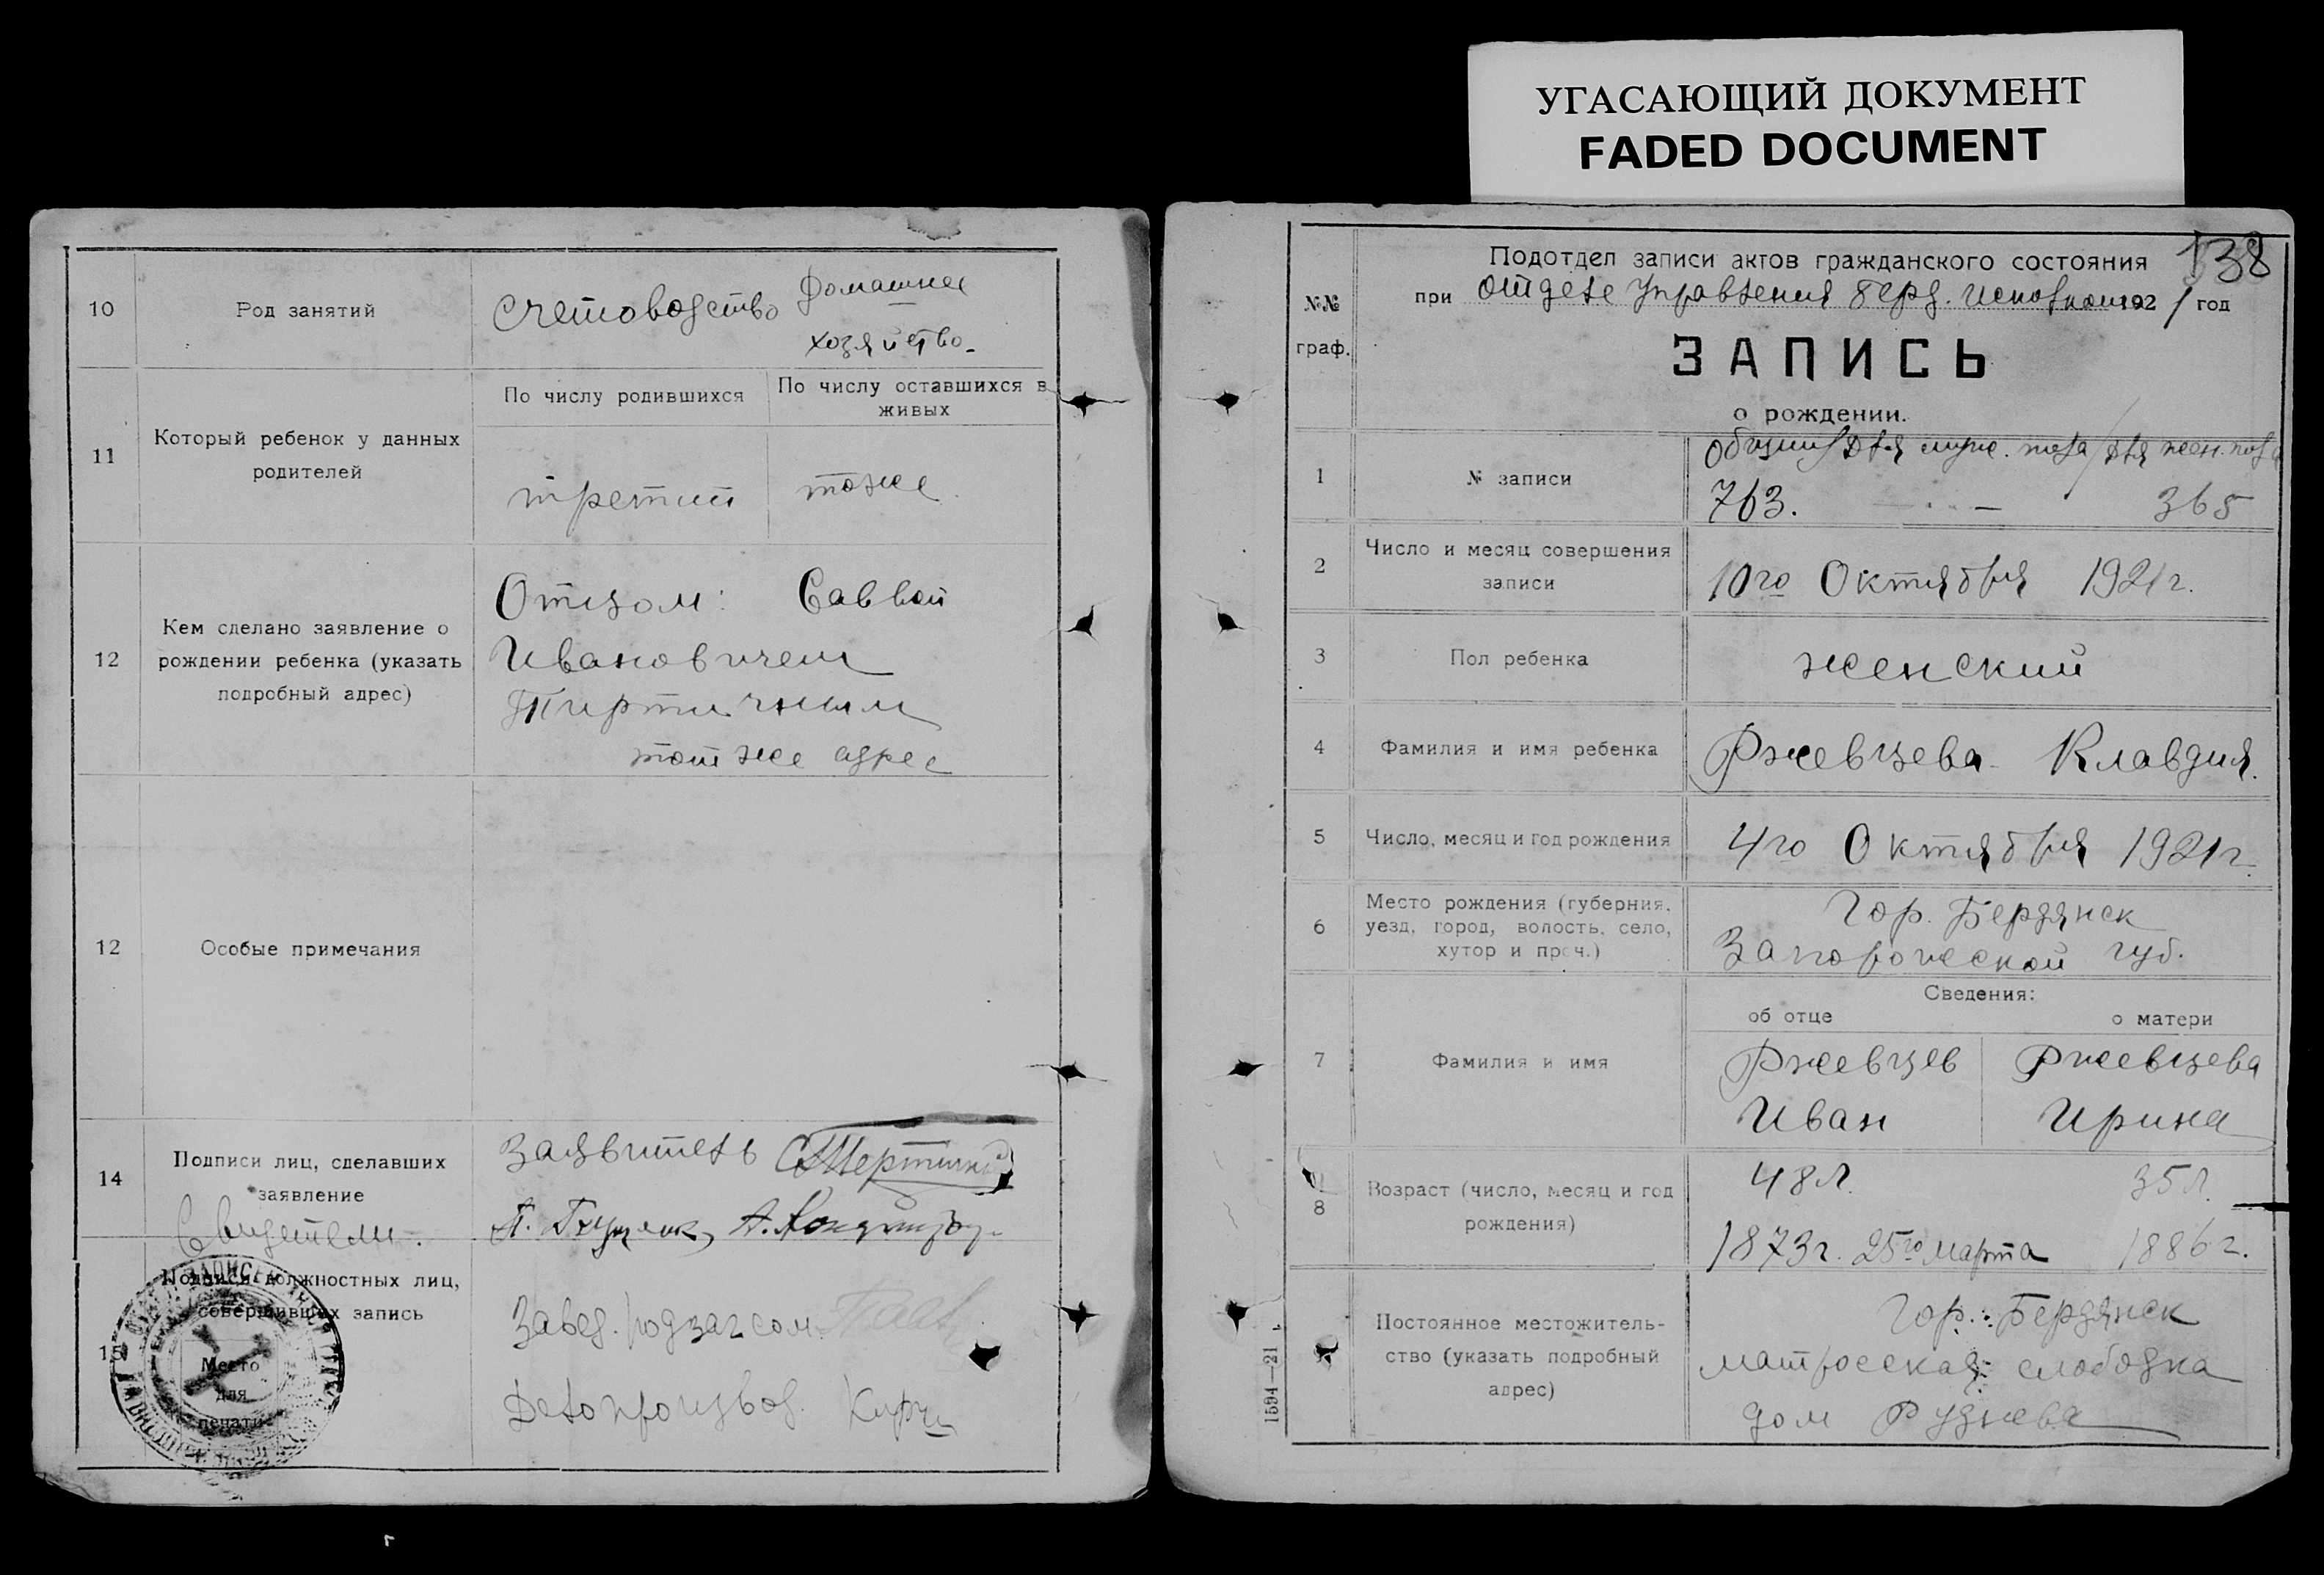 УГАСАЮЩИЙ ДОКУМЕНТ
FADED DOCUMENT
10
Род занятий
Счетоводство
Домашнее
хозяйство.
11
Который ребенок у данных
родителей
По числу родившихся
По числу оставшихся в
живых
третий
тоже
12
Кем сделано заявление о
рождении ребенка (указать
подробный адрес)
Отцом: Саввой
Ивановичем
тот же адрес
12
Особые примечания
14
Подписи лиц, сделавших
заявление
Свидетели.
Заявитель
15
Подписи должностных лиц,
совершивших запись
Место
для
печати
Завед. подзагсом
Делопроизвод.
138
№№
граф.
Подотдел записи актов гражданского состояния
при Отделе Управления Берд. Исполкома 1921 год
ЗАПИСЬ
о рождении.
1
№ записи
Общий / для муж. пола / для жен. пола
763. — 365
2
Число и месяц совершения
записи
10го Октября 1921 г.
3
Пол ребенка
женский
4
Фамилия и имя ребенка
Ржевцева Клавдия.
5
Число, месяц и год рождения
4го Октября 1921 г.
6
Место рождения (губерния,
уезд, город, волость, село,
хутор и проч.)
Гор. Бердянск
Запорожской губ.
Сведения:
об отце
о матери
7
Фамилия и имя
Ржевцев
Иван
Ржевцева
Ирина
8
Возраст (число, месяц и год
рождения)
48 л.
1873 г. 25го марта
35 л.
1886 г.
Постоянное местожитель-
ство (указать подробный
адрес)
Гор. Бердянск
матросская слободка
дом Руднева
1594—21